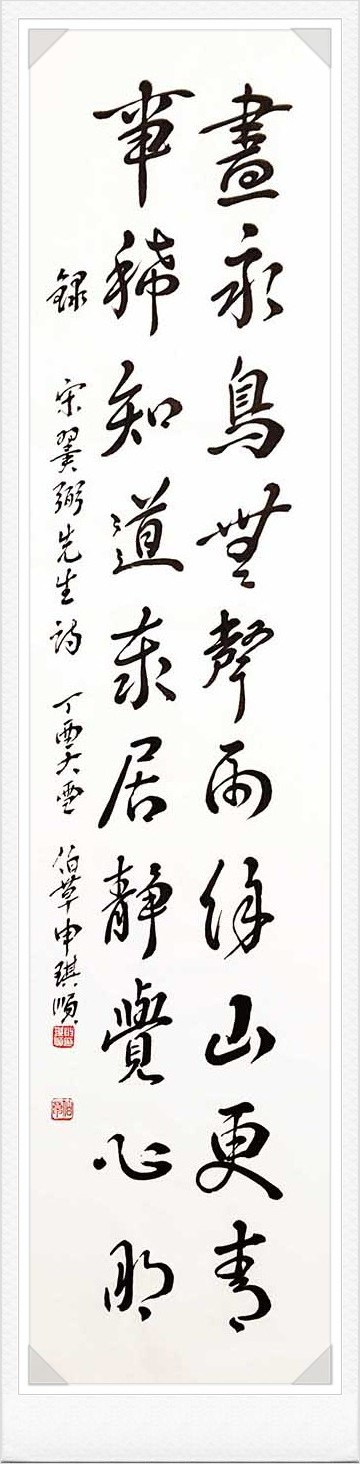 晝永鳥無聲雨餘山更青
事稀知道泰居靜覺心明
錄 宋翼弼先生詩 丁酉大雪 伯草申琪順